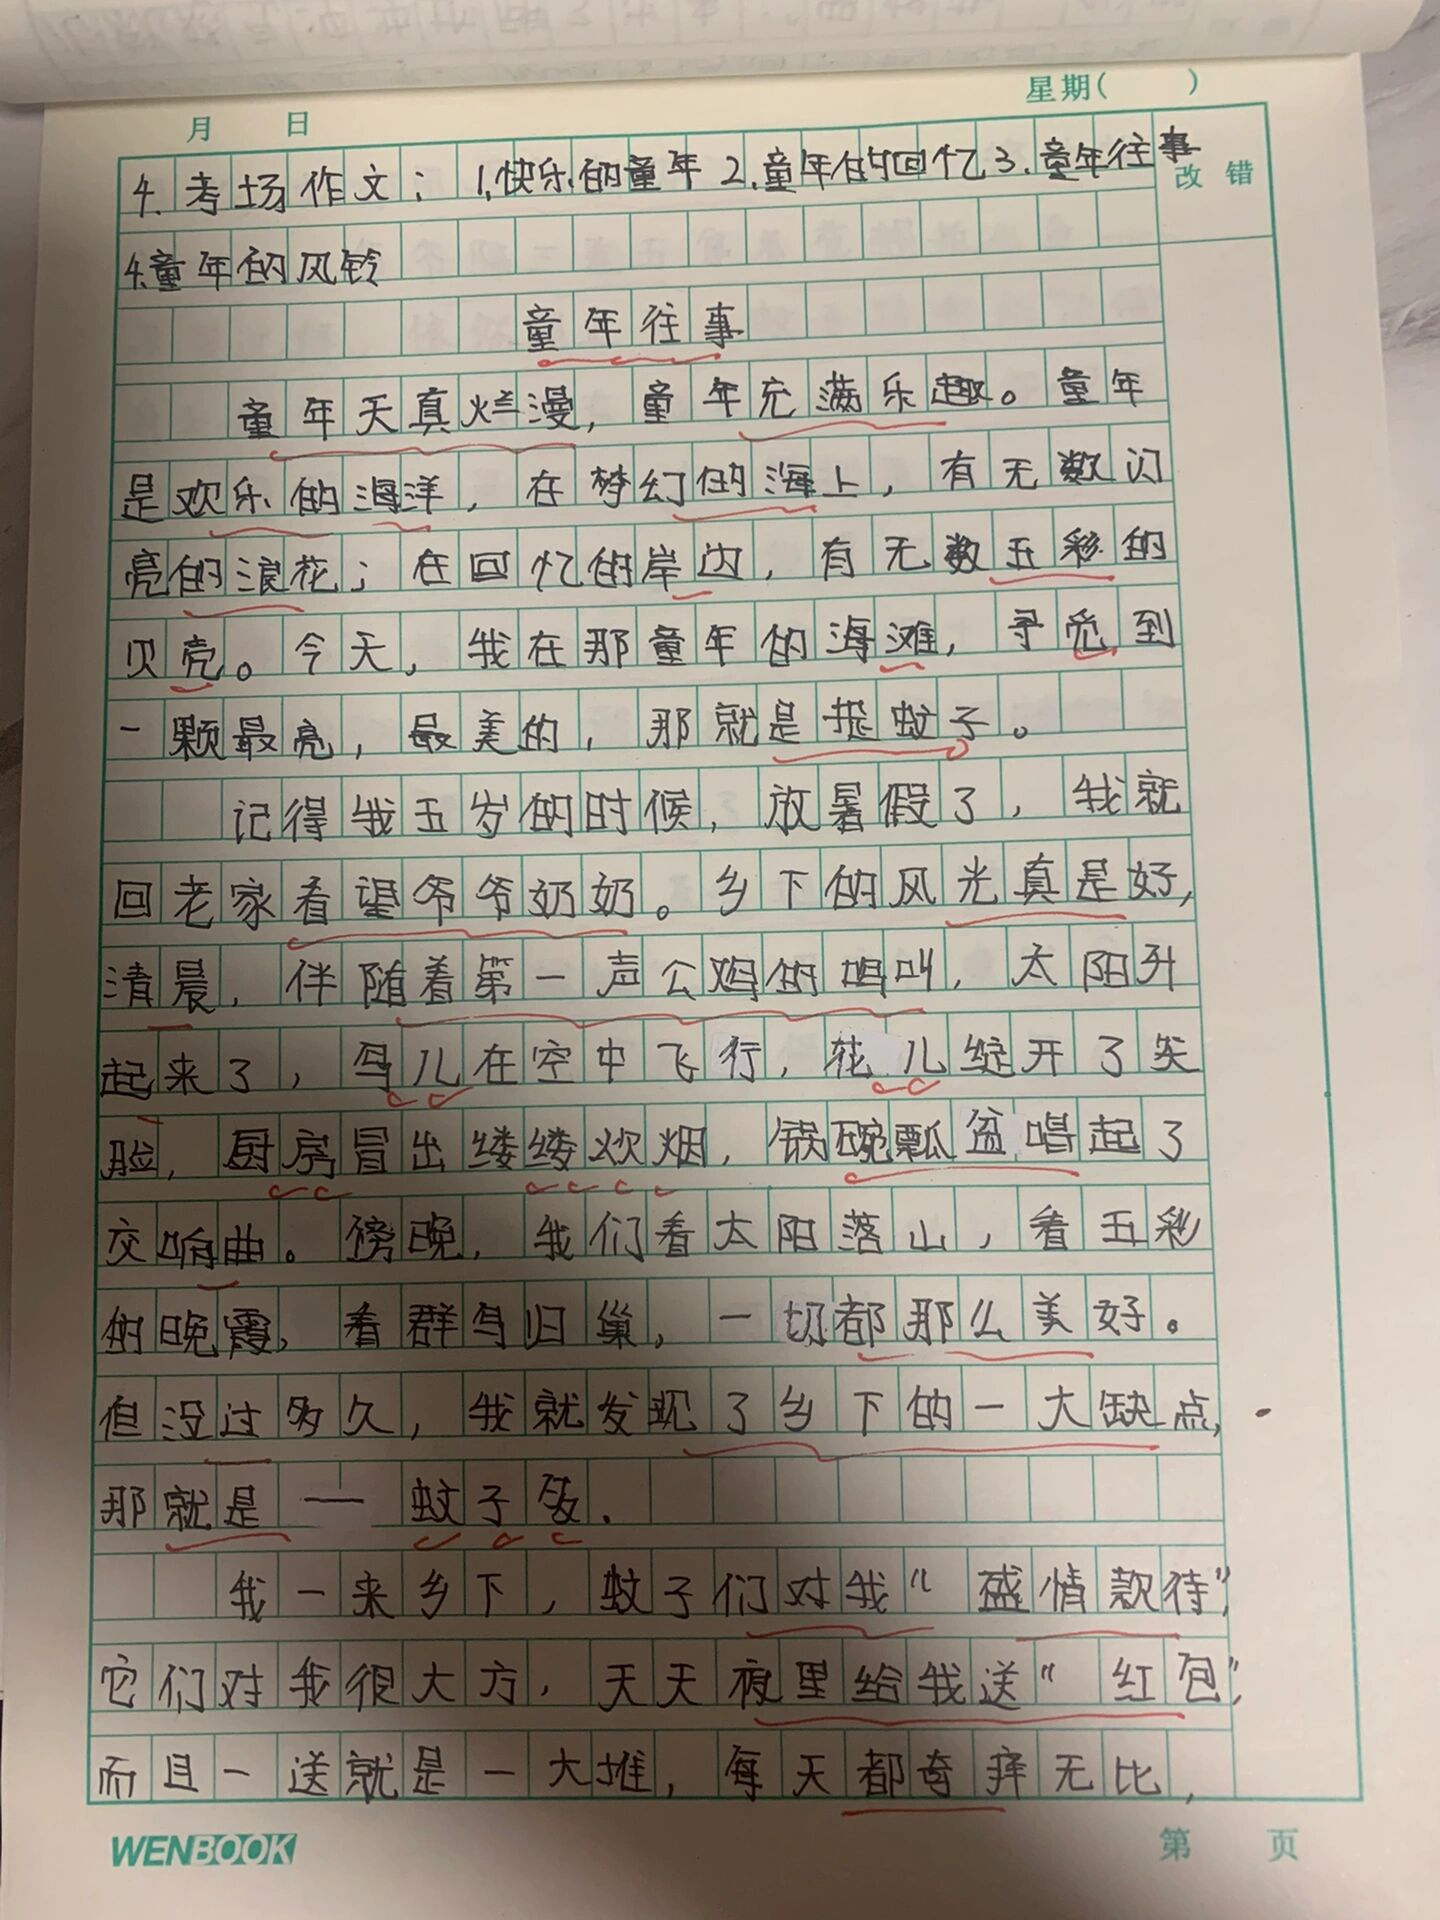 星期(    )
月 日
4.考场作文：1.快乐的童年2.童年的回忆3.童年往事
改错
4.童年的风铃
童年往事
童年天真烂漫，童年充满乐趣。童年
是欢乐的海洋，在梦幻的海上，有无数闪
亮的浪花；在回忆的岸边，有无数五彩的
贝壳。今天，我在那童年的海滩，寻觅到
一颗最亮，最美的，那就是捉蚊子。
记得我五岁的时候，放暑假了，我就
回老家看望爷爷奶奶。乡下的风光真是好，
清晨，伴随着第一声公鸡的鸣叫，太阳升
起来了，鸟儿在空中飞行，花儿绽开了笑
脸，厨房冒出缕缕炊烟，锅碗瓢盆唱起了
交响曲。傍晚，我们看太阳落山，看五彩
的晚霞，看群鸟归巢，一切都那么美好。
但没过多久，我就发现了乡下的一大缺点，
那就是——蚊子多.
我一来乡下，蚊子们对我“盛情款待”，
它们对我很大方，天天夜里给我送“红包”，
而且一送就是一大堆，每天都奇痒无比，
WENBOOK
第 页